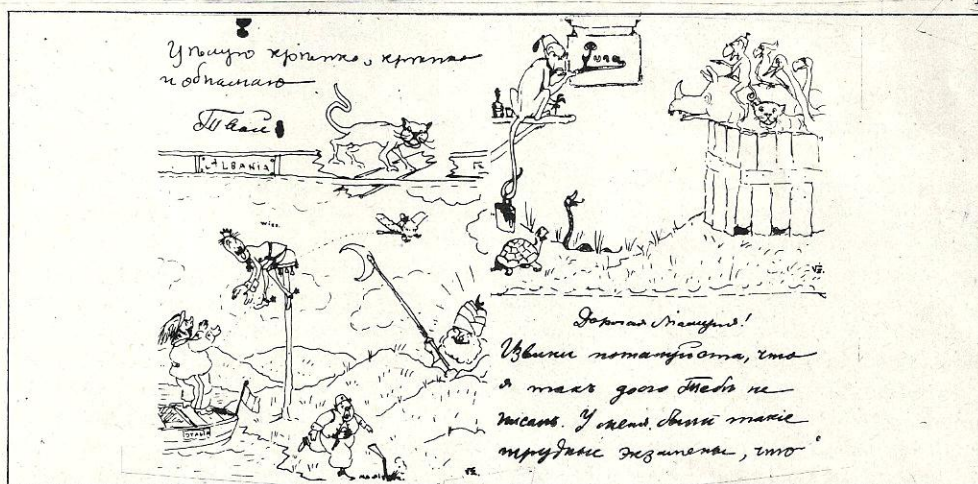 Цѣлую крѣпко, крѣпко
и обнимаю.
Твой
ALBANIA
wiec.
Дорогая Мамуся!
Извини пожалуйста, что
я такъ долго Тебѣ не
писалъ. У меня были такіе
трудные экзамены, что